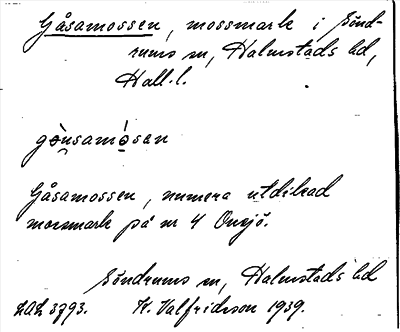 Gåsamossen, mossmark i Sönd-
rums sn, Halmstads hd,
Hall.l.
gòusamósen
Gåsamossen, numera utdikad
mossmark på nr 4 Onsjö.
Söndrums sn, Halmstads hd
LAL 3793. K. Valfridsson 1939.